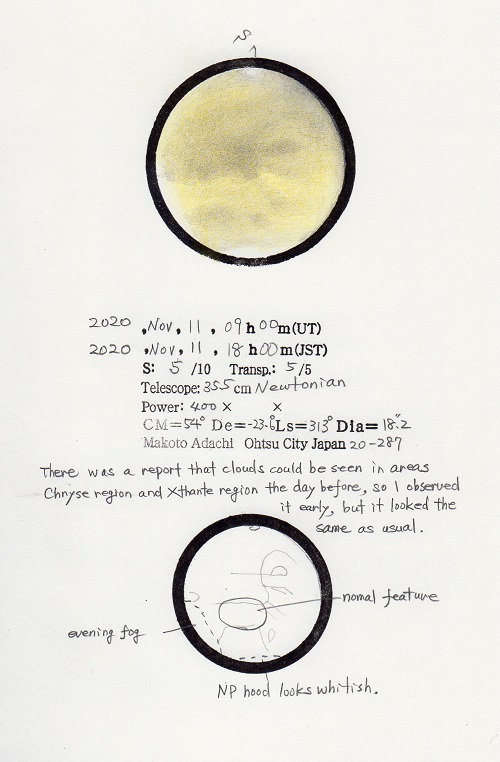 S
2020 ,Nov, 11 , 09h00m(UT)
2020 ,Nov, 11 , 18h00m(JST)
S: 5 /10 Transp.: 5/5
Telescope: 355cm Newtonian
Power: 400× ×
CM=54° De=-23.6 Ls=313° Dia=18."2
Makoto Adachi Ohtsu City Japan 20-287
There was a report that clouds could be seen in areas
Chryse region and Xthante region the day before, so I observed
it early, but it looked the
same as usual.
nomal feature
evening fog
NP hood looks whitish.